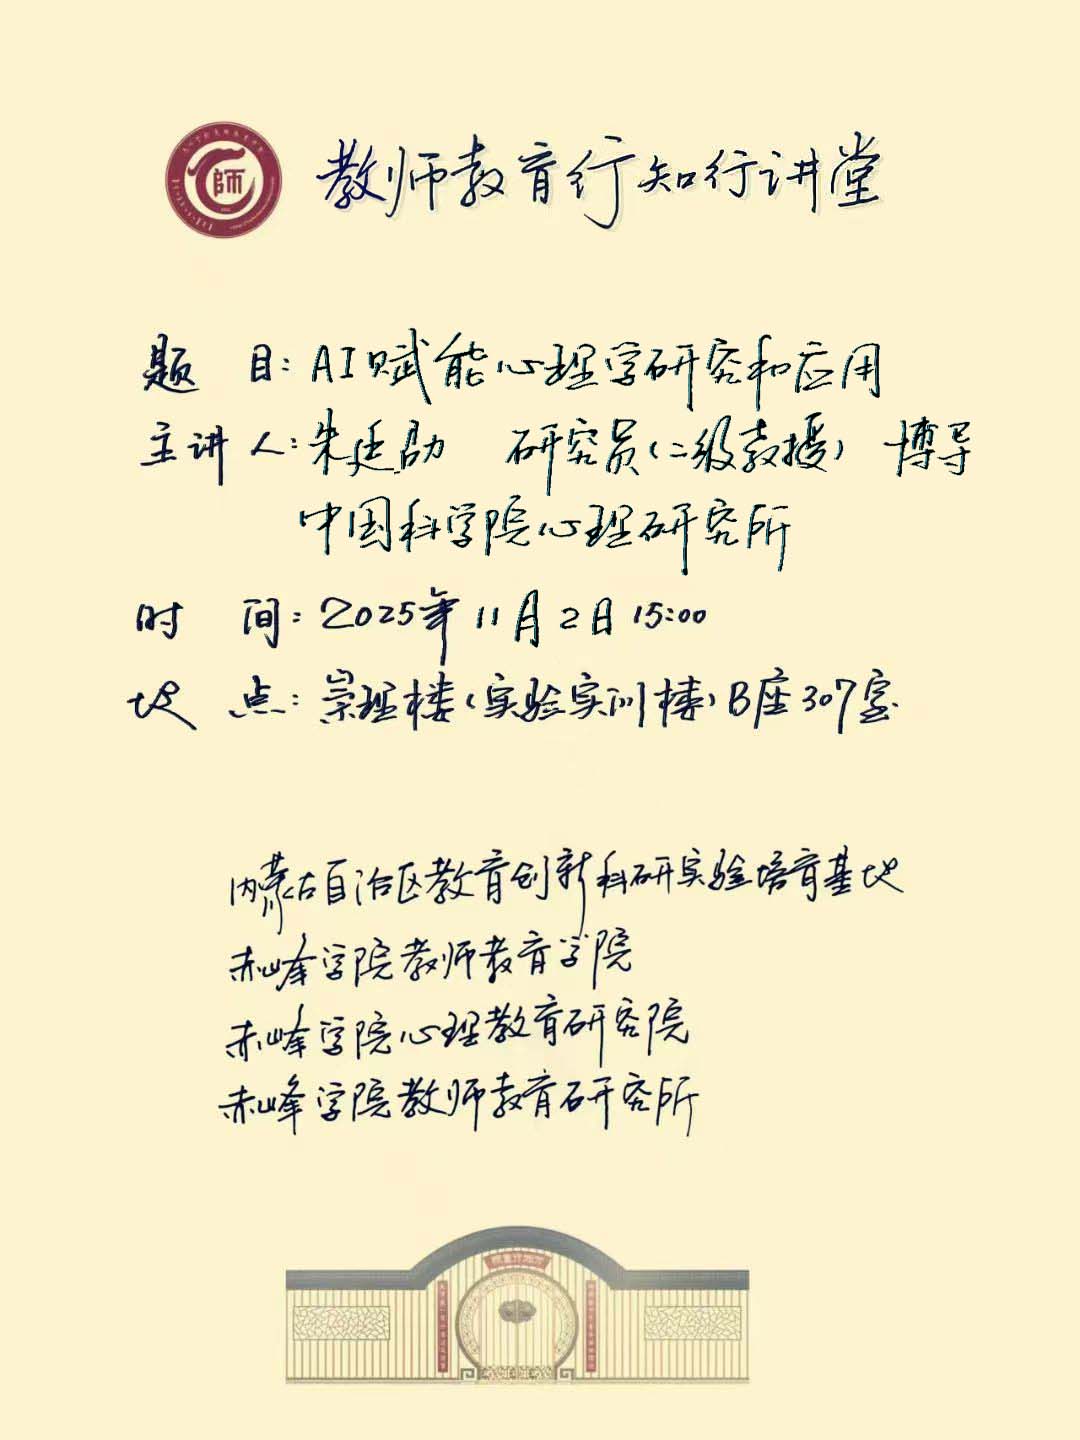 師
教师教育行知行讲堂
题 目：AI赋能心理学研究和应用
主讲人：朱廷劭 研究员（二级教授） 博导
中国科学院心理研究所
时 间：2025年11月2日15:00
地 点：崇理楼（实验实训楼）B座307室
内蒙古自治区教育创新科研实验培育基地
赤峰学院教师教育学院
赤峰学院心理教育研究院
赤峰学院教师教育研究所